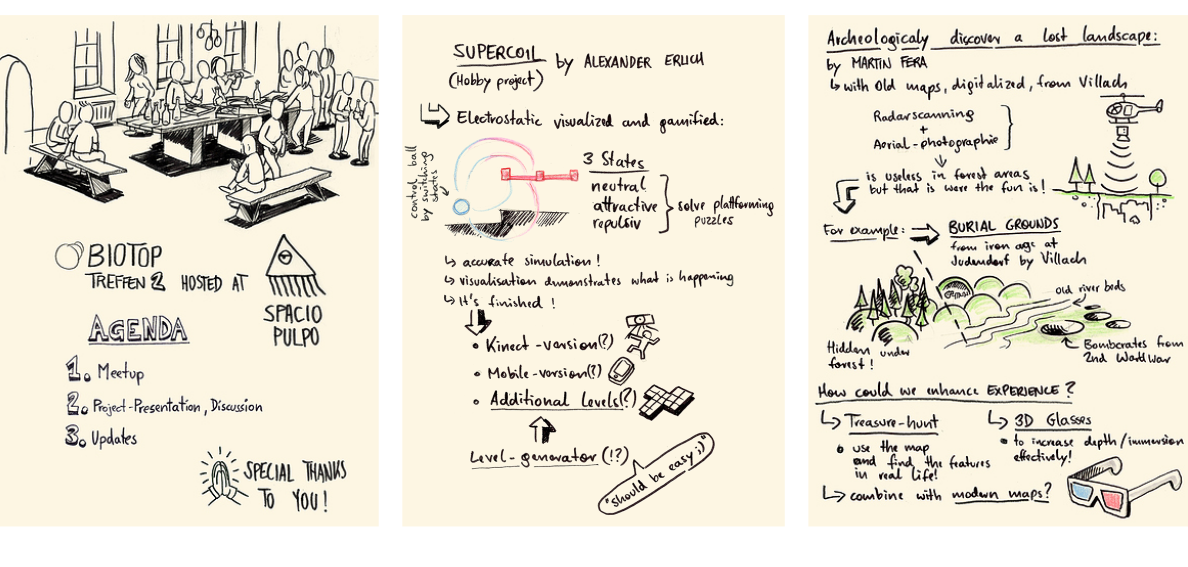 BIOTOP
TREFFEN 2 HOSTED AT
SPACIO
PULPO
AGENDA
1. Meetup
2. Project-Presentation, Discussion
3. Updates
SPECIAL THANKS
TO YOU!
SUPERCOIL by ALEXANDER ERLICH
(Hobby project)
↳ Electrostatic visualized and gamified:
control ball
by switching
states
3 States
neutral
attractive
repulsiv
solve plattforming
puzzles
↳ accurate simulation!
↳ visualisation demonstrates what is happening
↳ It's finished!
• Kinect-version(?)
• Mobile-version(?)
• Additional Levels(?)
Level-generator(!?)
"should be easy ;)"
Archeologicaly discover a lost landscape:
by MARTIN FERA
↳ with Old maps, digitalized, from Villach
Radarscanning
+
Aerial-photographie
is useless in forest areas
but that is were the fun is!
For example: → BURIAL GROUNDS
from iron age at
Judendorf by Villach
old river beds
Hidden under
forest!
Bombcrates from
2nd World War
How could we enhance EXPERIENCE?
↳ Treasure-hunt
• use the map
and find the features
in real life!
↳ combine with modern maps?
↳ 3D Glasses
• to increase depth/immersion
effectively!